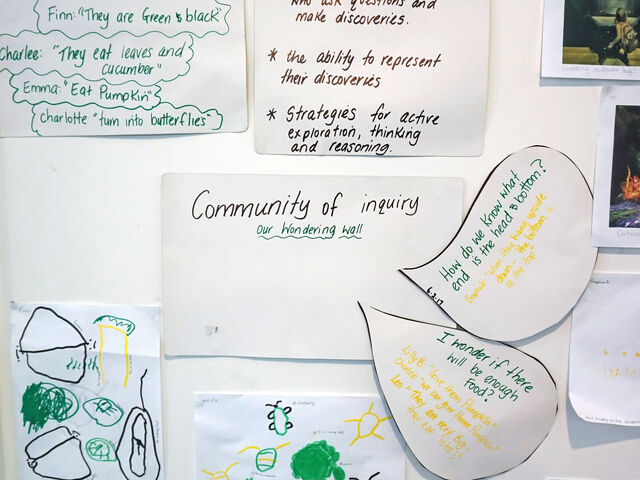 Finn: "They are Green & black"
Charlee: "They eat leaves and
cucumber"
Emma: "Eat Pumpkin"
Charlotte "turn into butterflies"
who ask questions and
make discoveries.
* the ability to represent
their discoveries
* Strategies for active
exploration, thinking
and reasoning.
Community of inquiry
Our Wondering Wall
How do we know what
end is the head & bottom?
Sophie "when they hang upside
down - the bottom is
at the top"
6.2.17
I wonder if there
will be enough
Food?
Lilly B. "Give them Pumpkin"
Charlie "we can give them Pumpkin"
Leo "They are very Big -
they eat lots"